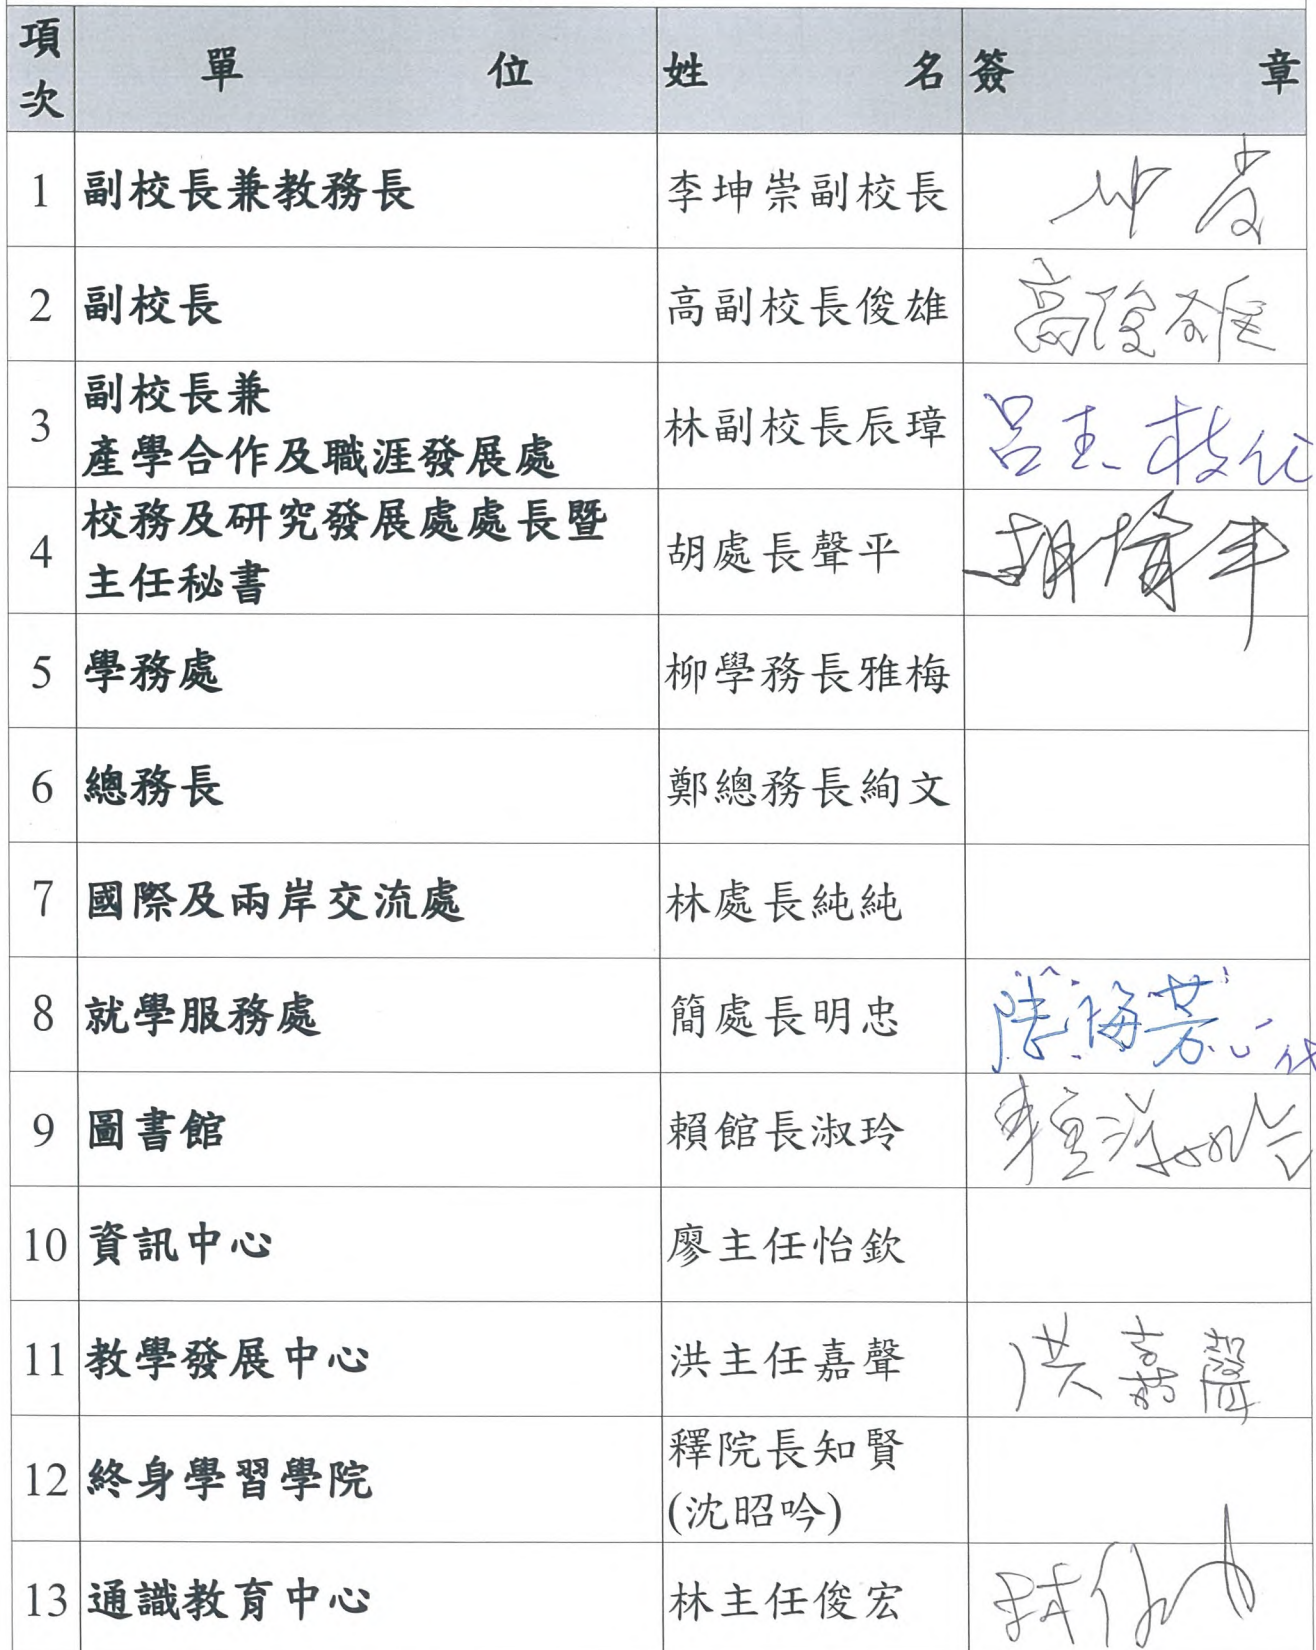 項次 單位 姓名 簽章
1 副校長兼教務長 李坤崇副校長
2 副校長 高副校長俊雄 高俊雄
副校長兼
3 林副校長辰璋 呂玉枝代
產學合作及職涯發展處
校務及研究發展處處長暨
4 胡處長聲平
主任秘書
5 學務處 柳學務長雅梅
6 總務長 鄭總務長絢文
7 國際及兩岸交流處 林處長純純
8 就學服務處 簡處長明忠 陳海芳 代
9 圖書館 賴館長淑玲 賴淑玲
10 資訊中心 廖主任怡欽
11 教學發展中心 洪主任嘉聲 洪嘉聲
釋院長知賢
12 終身學習學院
(沈昭吟)
13 通識教育中心 林主任俊宏